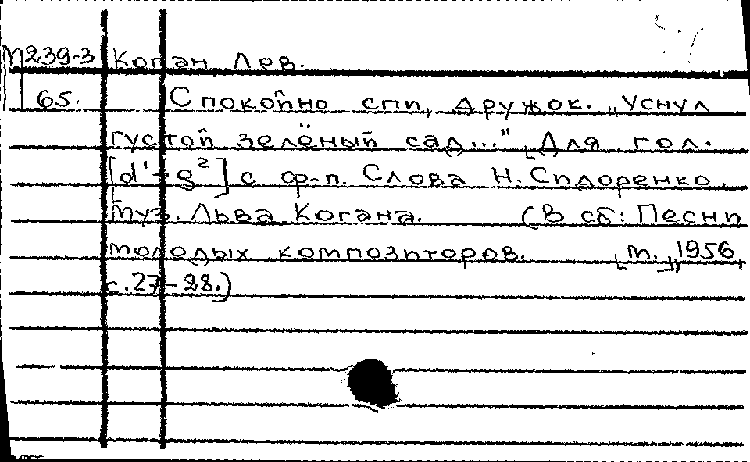 М239-3 Коган Лев.
65. Спокойно спи, дружок. „Уснул
густой зелёный сад..." Для гол.
[d¹-g²] с ф-п. Слова Н. Сидоренко.
Муз. Льва Когана. (В сб: Песни
молодых композиторов. [М.], 1956,
с. 27-28.)